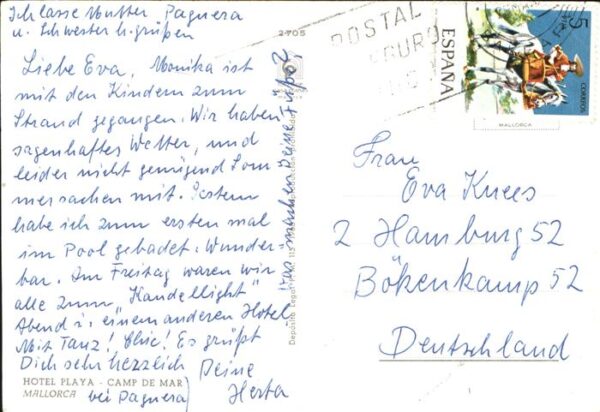 Ich lasse Mutter Paguera
u. Schwester h. grüßen
Liebe Eva, Monika ist
mit den Kindern zum
Strand gegangen. Wir haben
sagenhaftes Wetter, und
leider nicht genügend Som
mersachen mit. Gestern
habe ich zum ersten mal
im Pool gebadet. Wunder-
bar. Am Freitag waren wir
alle zum "Kandellight"
Abend i. einem anderen Hotel
Mit Tanz! Chic! Es grüßt
Dich sehr herzlich Deine
Herta
Was machen Deine Füße?
HOTEL PLAYA - CAMP DE MAR
MALLORCA bei Paguera
2705
Deposito Legal
POSTAL
ESPAÑA
5
CORREOS
MALLORCA
Frau
Eva Knees
2 Hamburg 52
Bökenkamp 52
Deutschland